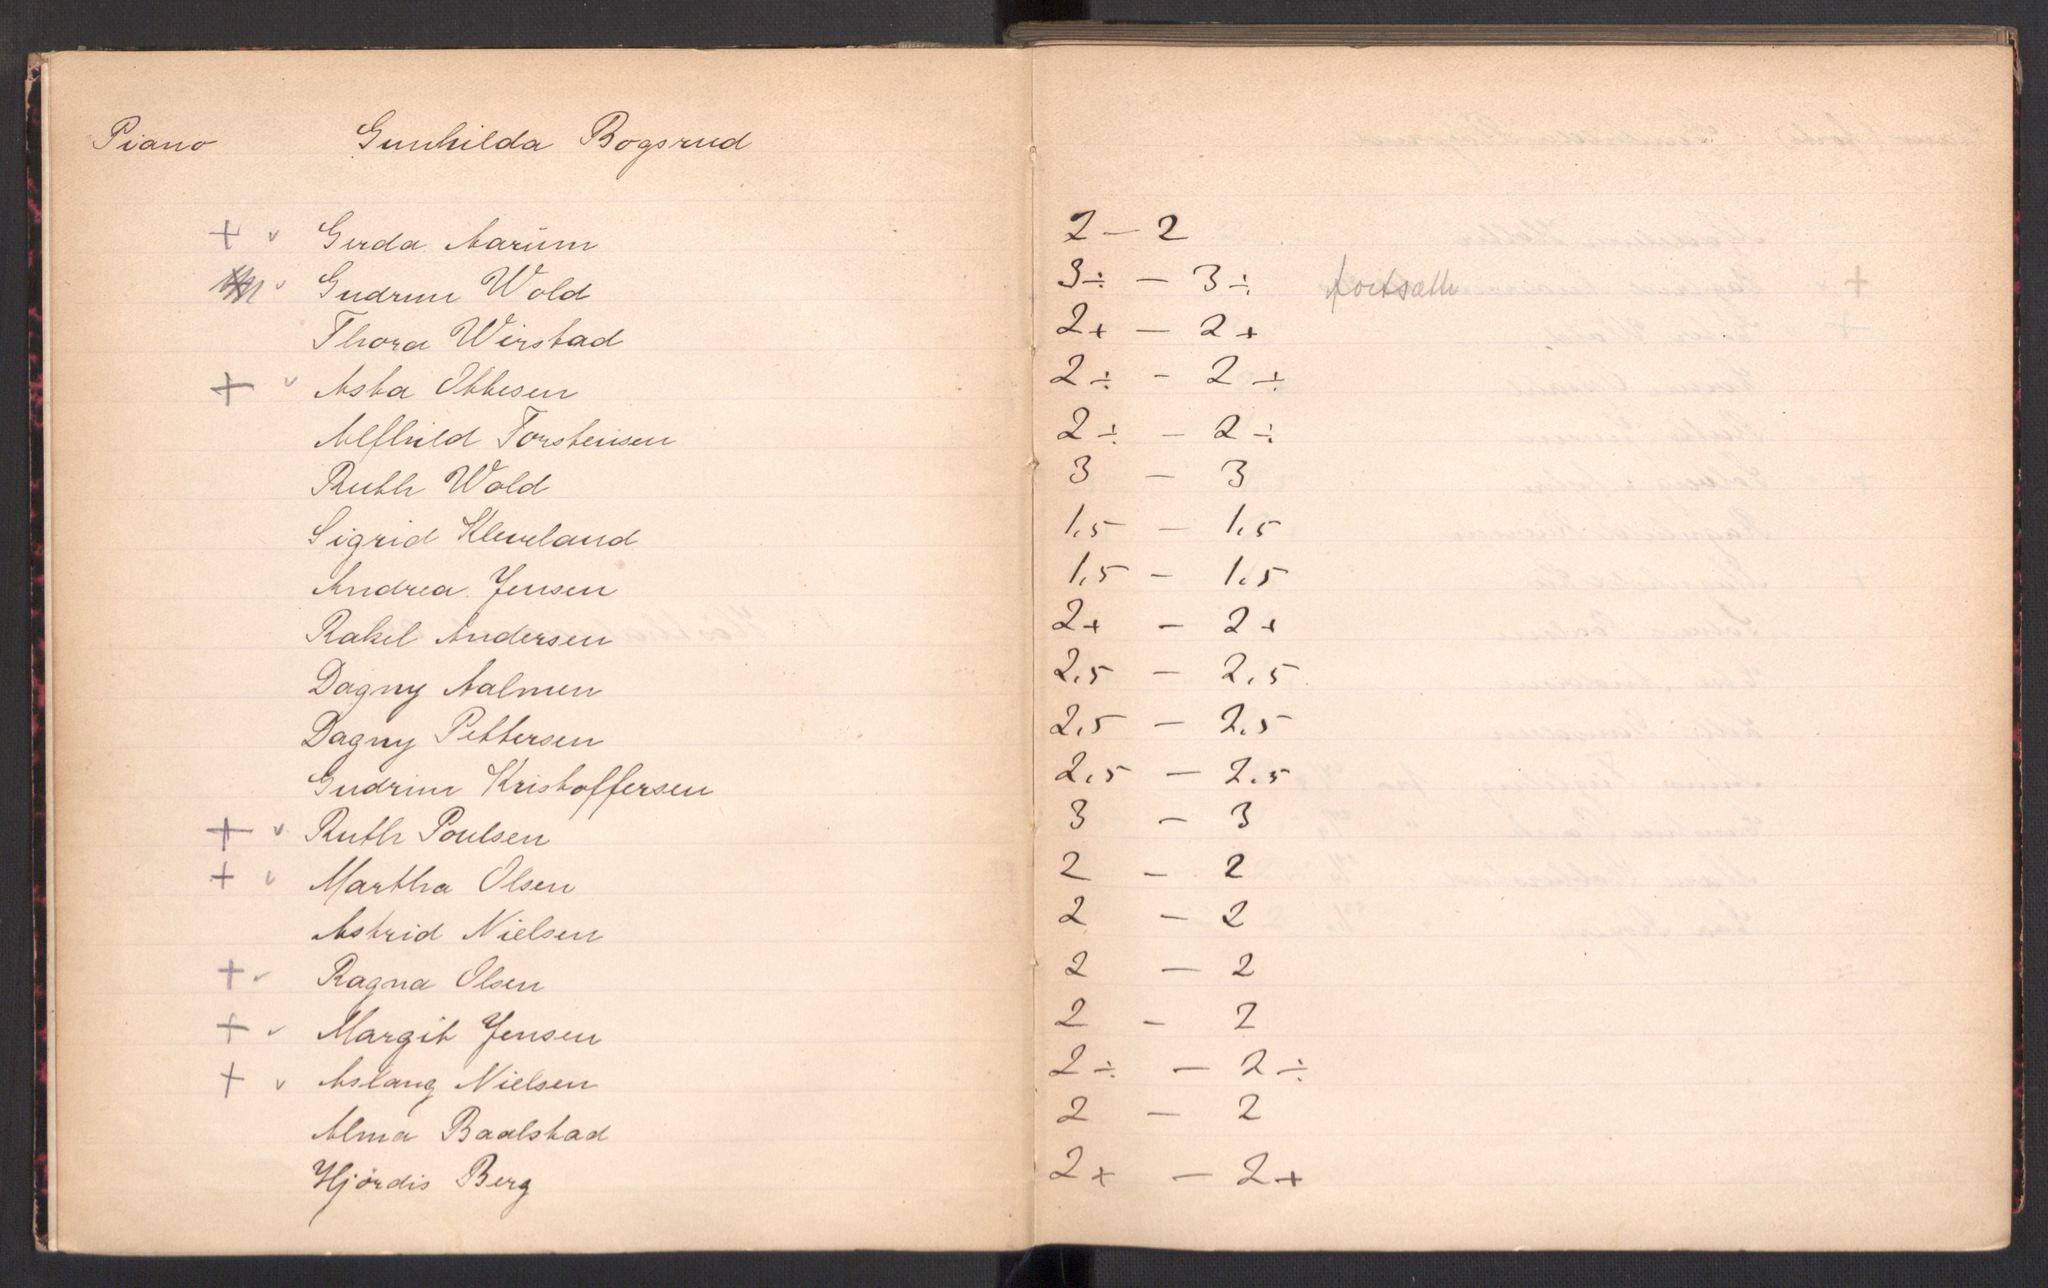 Piano Gunhilda Bogsrud
+ v Gerda Aarum 2 – 2
v Gudrun Wold 3÷ – 3÷ fortsatte
Thora Wirstad 2+ – 2+
+ v Asta Ottesen 2÷ – 2÷
Alfhild Torstensen 2÷ – 2÷
Ruth Wold 3 – 3
Sigrid Kleveland 1,5 – 1,5
Andrea Jensen 1,5 – 1,5
Rakel Andersen 2+ – 2+
Dagny Aalmen 2,5 – 2,5
Dagny Pettersen 2,5 – 2,5
Gudrun Kristoffersen 2,5 – 2,5
+ v Ruth Poulsen 3 – 3
+ v Martha Olsen 2 – 2
Astrid Nielsen 2 – 2
+ v Ragna Olsen 2 – 2
+ v Margit Jensen 2 – 2
+ v Aslaug Nielsen 2÷ – 2÷
Alma Baalstad 2 – 2
Hjördis Berg 2+ – 2+